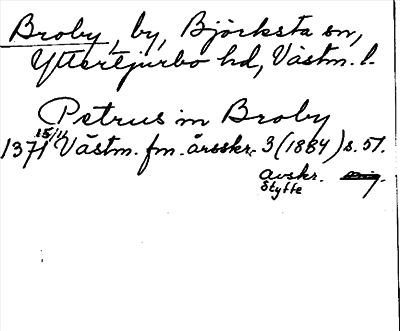 Broby, by, Björksta sn,
Yttertjurbo hd, Västm. l.
Petrus in Broby
1371 15/11 Västm. fm. årsskr. 3 (1884) s. 57.
avskr.
Styffe